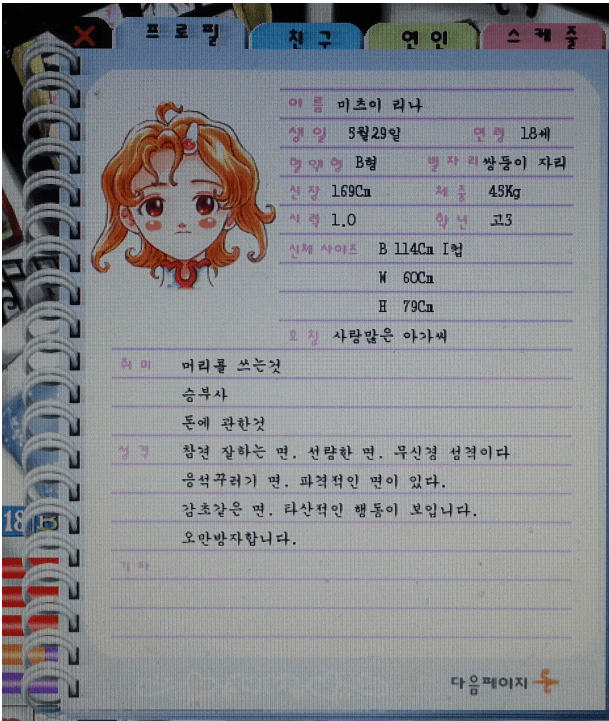 프로필 친구 연인 스케줄
이름 미츠이 리나
생일 5월29일 연령 18세
혈액형 B형 별자리 쌍둥이 자리
신장 169Cm 체중 45Kg
시력 1.0 학년 고3
신체 사이즈 B 114Cm I컵
W 60Cm
H 79Cm
호칭 사랑많은 아가씨
취미 머리를 쓰는것
승부사
돈에 관한것
성격 참견 잘하는 면. 선량한 면. 무신경 성격이다
응석꾸러기 면. 파격적인 면이 있다.
감초같은 면. 타산적인 행동이 보입니다.
오만방자합니다.
18
기타
다음페이지